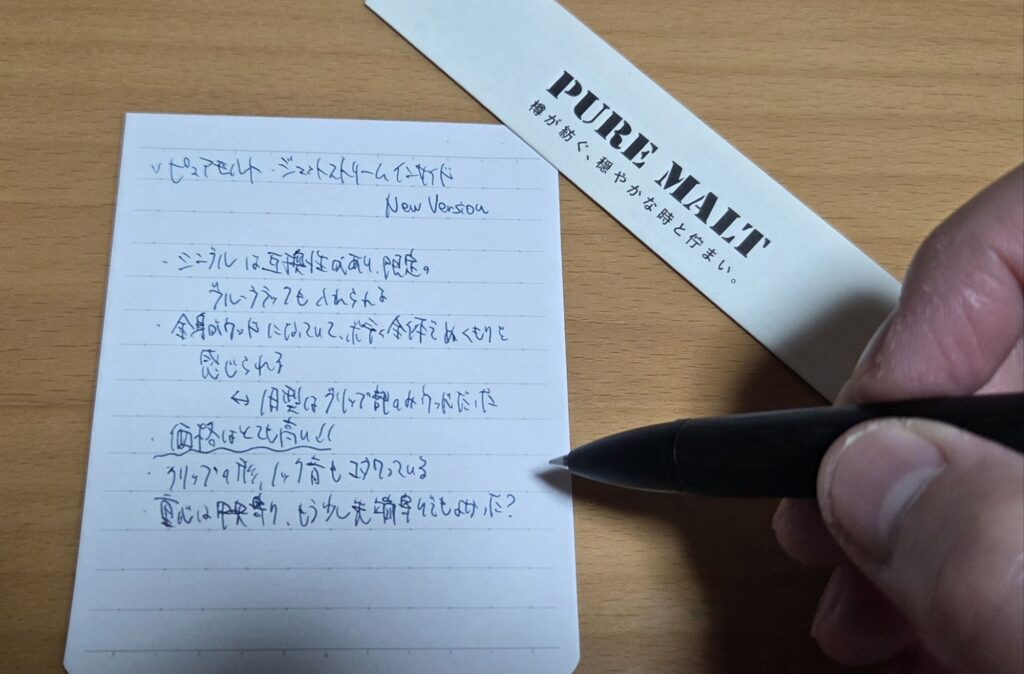 ピュアモルト・ジェットストリームインサイド
New Version
・シングルは互換性があり、限定の
ブルーブラックも入れられる
・全身がウッドになっていて、ボディ全体でぬくもりを
感じられる
↔ 旧型はグリップ部のみウッドだった
・価格はとても高い!!
・クリップの形、ノック音もコダワっている
・重心は中央寄り、もう少し先端寄りでもよかった?
PURE MALT
樽が紡ぐ、穏やかな時と佇まい。